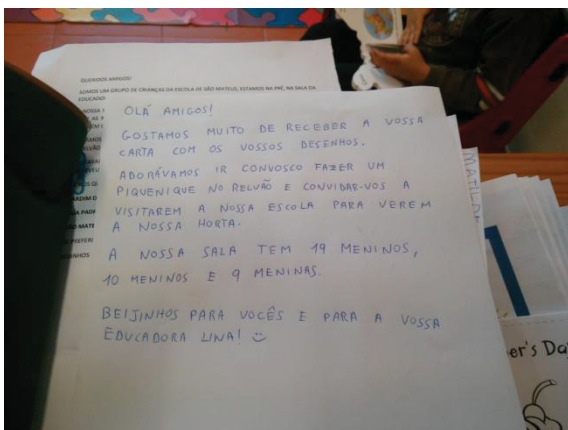 QUERIDOS AMIGOS!
SOMOS UM GRUPO DE CRIANÇAS DA ESCOLA DE SÃO MATEUS, ESTAMOS NA PRÉ, NA SALA DA
OLÁ AMIGOS!
GOSTAMOS MUITO DE RECEBER A VOSSA
CARTA COM OS VOSSOS DESENHOS.
ADORÁVAMOS IR CONVOSCO FAZER UM
PIQUENIQUE NO RELVÃO E CONVIDAR-VOS A
VISITAREM A NOSSA ESCOLA PARA VEREM
A NOSSA HORTA.
A NOSSA SALA TEM 19 MENINOS,
10 MENINOS E 9 MENINAS.
BEIJINHOS PARA VOCÊS E PARA A VOSSA
EDUCADORA LINA! ☺
MATILDA
er's Da